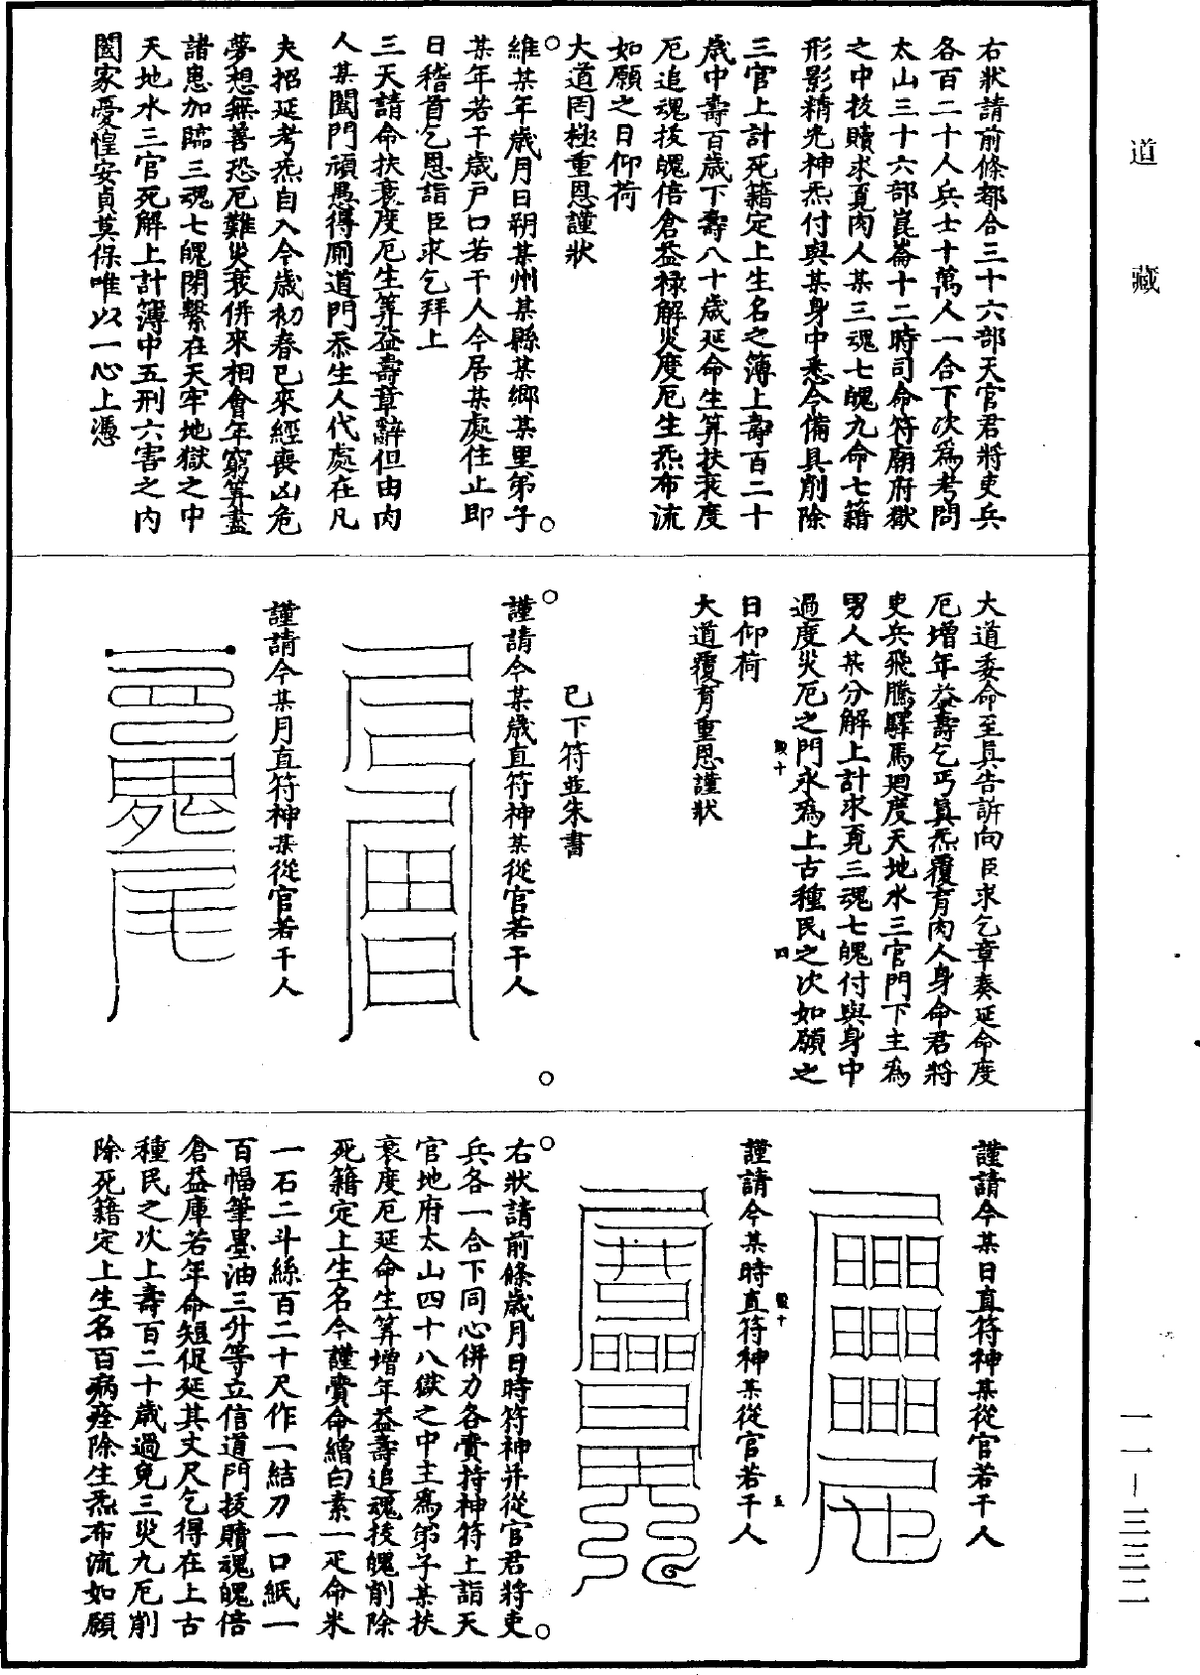 道藏
右狀請前條都合三十六部天官君將吏兵
各百二十人兵士十萬人一合下次爲考問
太山三十六部崑崙十二時司命符廟府獄
之中技贖求覓肉人某三魂七魄九命七籍
形影精光神炁付與某身中悉令備具削除
三官上計死籍定上生名之簿上壽百二十
歲中壽百歲下壽八十歲延命生筭扶衰度
厄追魂拔魄倍倉益祿解災度厄生炁布流
如願之日仰荷
大道罔極重恩謹狀
維某年歲月日朔某州某縣某鄉某里弟子
某年若干歲戶口若干人今居某處住止即
日稽首乞恩詣臣求乞拜上
三天請命扶衰度厄生筭益壽章辭但由肉
人某闔門頑愚得厠道門忝生人代處在凡
夫招延考炁自入今歲初春已來經喪凶危
夢想無善恐厄難災衰併來相會年窮筭盡
諸患加臨三魂七魄閉繫在天牢地獄之中
天地水三官死解上計簿中五刑六害之內
闔家憂惶安貞莫保唯以一心上憑
大道委命至眞告訴向臣求乞章奏延命度
厄增年益壽乞丐眞炁覆育肉人身命君將
吏兵飛騰驛馬廻度天地水三官門下主爲
男人某分解上計求覓三魂七魄付與身中
過度災厄之門永爲上古種民之次如願之
日仰荷
大道覆育重恩謹狀
已下符並朱書
謹請今某歲直符神某從官若干人
謹請今某月直符神某從官若干人
謹請今某日直符神某從官若干人
謹請今某時直符神某從官若干人
右狀請前條歲月日時符神并從官君將吏
兵各一合下同心併力各賷持神符上詣天
官地府太山四十八獄之中主爲弟子某扶
衰度厄延命生筭增年益壽追魂拔魄削除
死籍定上生名今謹賷命繒白素一疋命米
一石二斗絲百二十尺作一結刀一口紙一
百幅筆墨油三升等立信道門拔贖魂魄倍
倉益庫若年命短促延其丈尺乞得在上古
種民之次上壽百二十歲過免三災九厄削
除死籍定上生名百病痊除生炁布流如願
一一—三三二